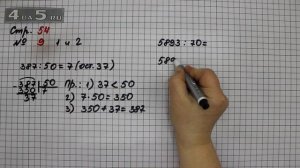 4АЛ5.COM
Стр. 54
№ 9 1 и 2
387 : 50 = 7 (ост. 37)
- 387 | 50
350 | 7
37
Пр.: 1) 37 < 50
2) 7·50 = 350
3) 350 + 37 = 387
5893 : 70 =
589